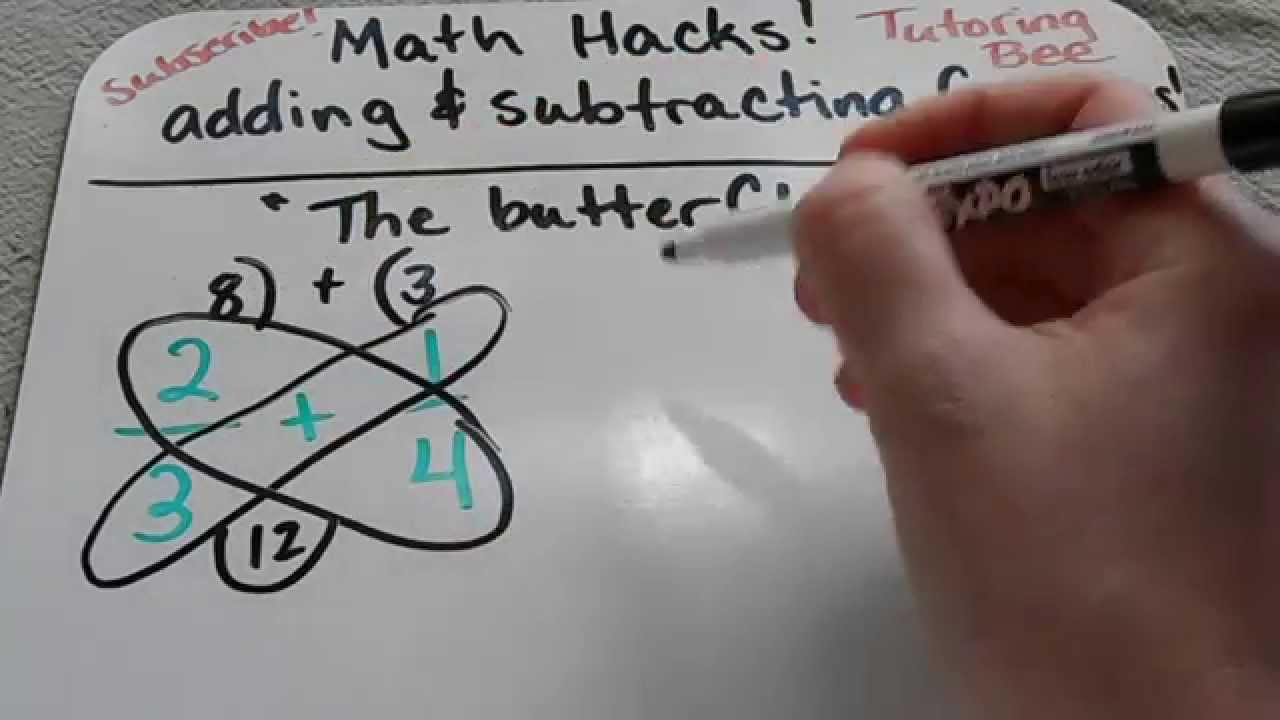 Subscribe! Math Hacks! Tutoring Bee
adding & subtracting
* The
8) + (3
2 + 1
3 4
12
EXPO